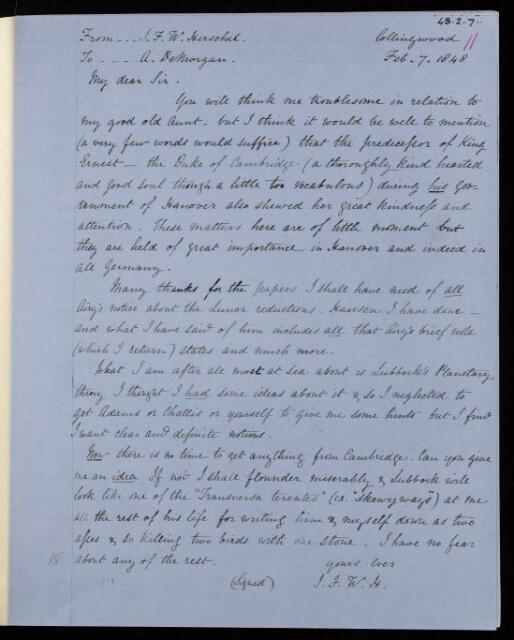 48-2-7
From --- J. F. W. Herschel. Collingwood 11
To - - - A. DeMorgan. Feb. 7. 1848
My dear Sir.
You will think me troublesome in relation to
my good old Aunt. but I think it would be well to mention
(a very few words would suffice) that the predecessor of King
Ernest – the Duke of Cambridge (a thoroughly kind hearted
and good soul though a little too vocabulous) during his Gov-
ernment of Hanover also shewed her great kindness and
attention. These matters here are of little moment but
they are held of great importance in Hanover and indeed in
all Germany.
Many thanks for the papers I shall have need of all
Airy's notice about the Lunar reductions. Hansen I have done –
and what I have said of him includes all that Airy's brief note
(which I return) states and much more.
What I am after all most at sea about is Lubbock's Planetary
theory I thought I had some ideas about it & so I neglected to
get Adams or Challis or yourself to give me some hints but I find
I want clear and definite notions.
Now there is no time to get anything from Cambridge. Can you give
me an idea If not I shall flounder miserably & Lubbock will
look like one of the "Transversa tuentes" (i.e. "Skewryways") at me
all the rest of his life for writing him & myself down as two
asses & so killing two birds with one stone. I have no fear
about any of the rest. yours ever
(Signed) J. F. W. H.